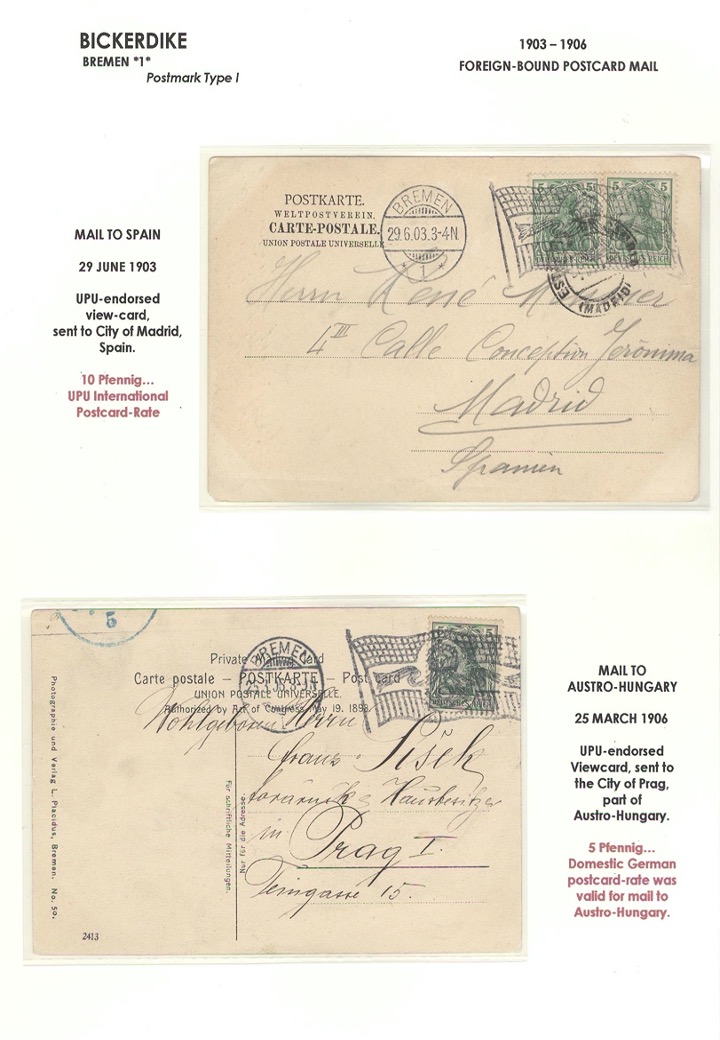 BICKERDIKE
BREMEN *1*
Postmark Type I
1903 – 1906
FOREIGN-BOUND POSTCARD MAIL
MAIL TO SPAIN
29 JUNE 1903
UPU-endorsed
view-card,
sent to City of Madrid,
Spain.
10 Pfennig...
UPU International
Postcard-Rate
POSTKARTE.
WELTPOSTVEREIN.
CARTE-POSTALE.
UNION POSTALE UNIVERSELLE
BREMEN
29.6.03.3-4N.
* 1 *
5 5
5 5
DEUTSCHES REICH
DEUTSCHES REICH
(MADRID)
Herrn René
4 III Calle Conception Jerónima
Madrid
Spanien
MAIL TO
AUSTRO-HUNGARY
25 MARCH 1906
UPU-endorsed
Viewcard, sent to
the City of Prag,
part of
Austro-Hungary.
5 Pfennig...
Domestic German
postcard-rate was
valid for mail to
Austro-Hungary.
5
Private Card
Carte postale – POSTKARTE – Post card
UNION POSTALE UNIVERSELLE.
Authorized by Act of Congress May 19. 1898.
BREMEN
5 5
DEUTSCHES REICH
Wohlgeboren Herrn
Franz
Hausbesitzer
in Prag I.
Teingasse 15.
Photographie und Verlag L. Placidus, Bremen. No. 59.
Für schriftliche Mitteilungen.
Nur für die Adresse.
2413